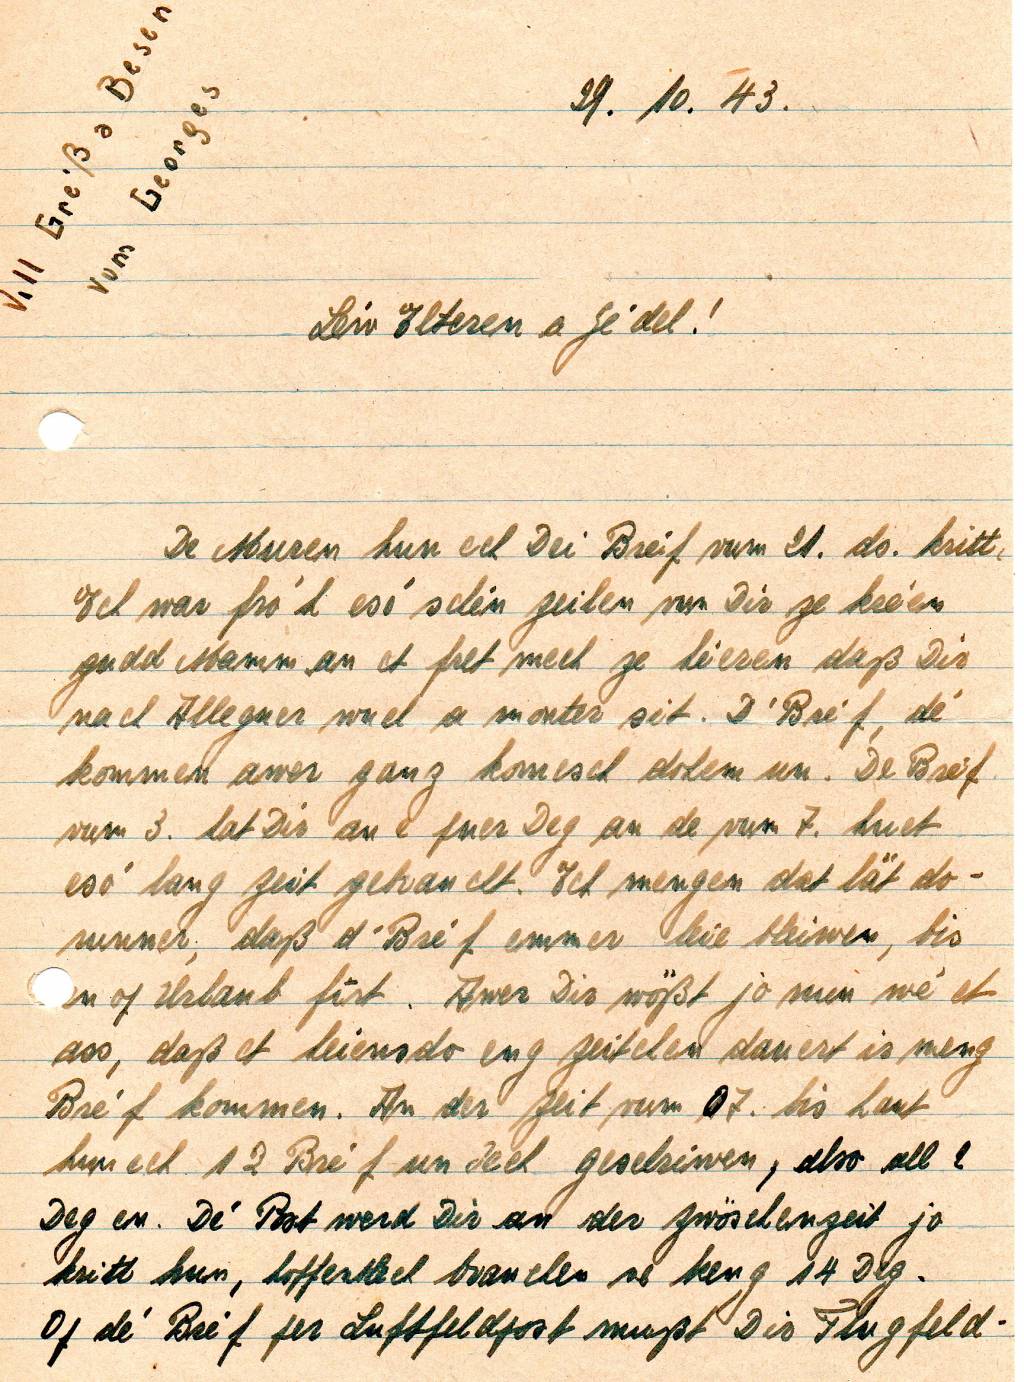 Vill Gréiß a Besen
vum Georges
29. 10. 43.
Leiw Elteren a Jé'del!
De Muren hun ech Dei Breif vum 21. ds. kritt.
Ech war fro'h esó' schéin Zeilen vun Dir ze kréen
gudd Mamm an et fret mech ze héieren daß Dir
nach Alleguer wuel a monter sit. D'Bré'f, dé
kommen awer ganz komesch dohem un. De Bréf
vum 3. hat Dir an e puer Deg an de vum 7. huet
esó' lang Zeit gebraucht. Ech mengen dat lät do-
runner, daß d'Bré'f emmer leie bleiwen, bis
en op Urlaub fiert. Awer Dir wößt jo nun wé' et
ass, daß et heiansdo eng Zeitchen dauert is meng
Bré'f kommen. An der Zeit vum 07. bis haut
hun ech 12 Bré'f un Iech geschriwen, also all 2
Deg en. Dé' Post werd Dir an der Zwöschenzeit jo
kritt hun, hoffentlech brauchen se keng 14 Deg.
Op dé' Bré'f per Luftfeldpost mußt Dir Flugfeld-